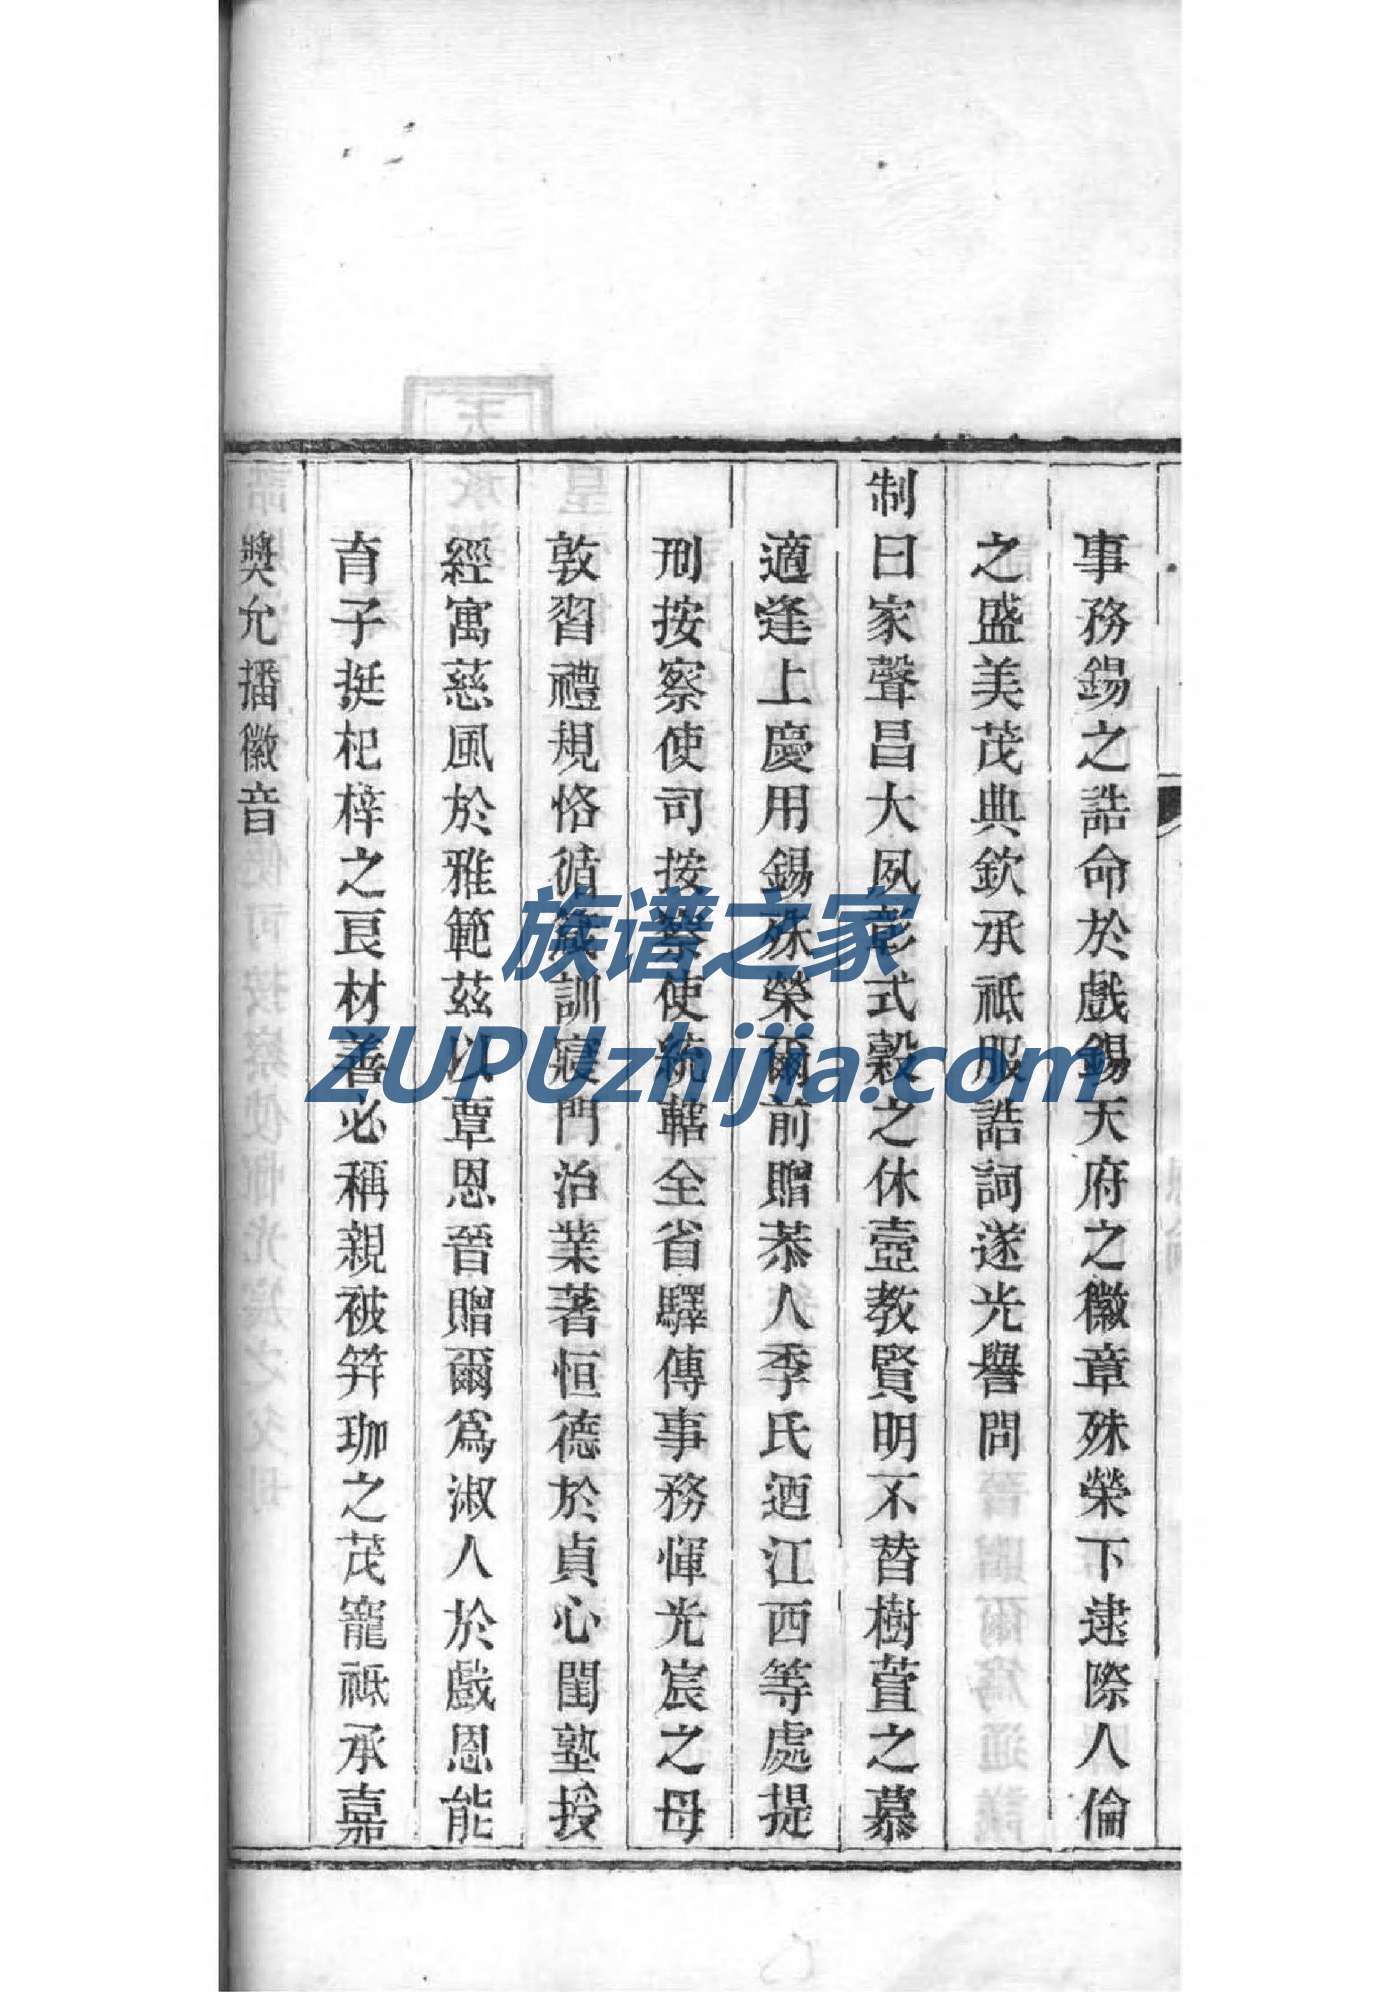 事務錫之誥命於戲錫天府之徽章殊榮下逮際人倫
之盛美茂典欽承祗服誥詞遂光譽問
制曰家聲昌大夙彰式穀之休壼教賢明不替樹萱之慕
適逢上慶用錫殊榮爾前贈恭人季氏迺江西等處提
刑按察使司按察使統轄全省驛傳事務惲光宸之母
敦習禮規恪循箴訓寢門治業著恒德於貞心閨塾授
經寓慈風於雅範茲以覃恩晉贈爾爲淑人於戲恩能
育子挺杞梓之良材善必稱親被笄珈之茂寵祗承嘉
奬允播徽音
族谱之家
ZUPUzhijia.com